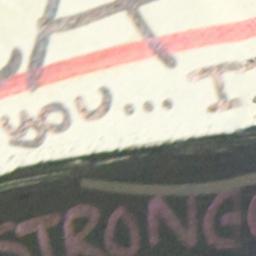 A
you... I
STRONG